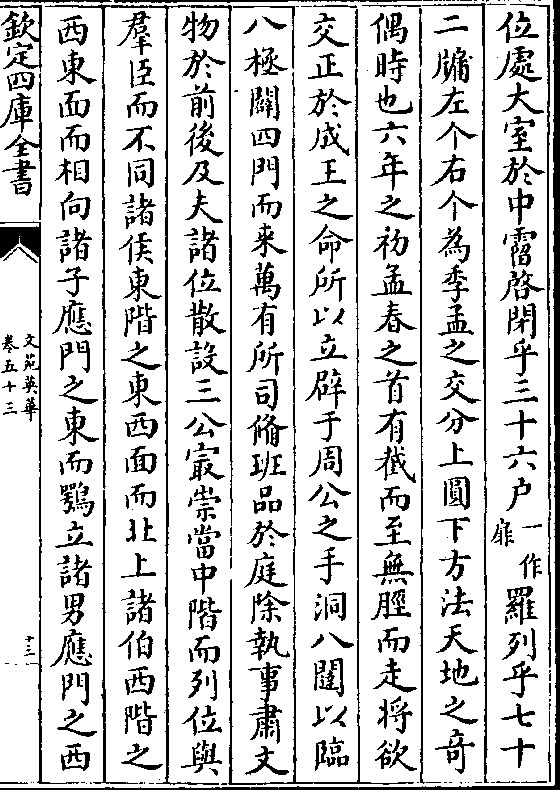 位處大室於中霤啓閉乎三十六户一作扉羅列乎七十
二牖左个右个為季孟之交分上圓下方法天地之奇
偶時也六年之初孟春之首有截而至無脛而走將欲
交正於成王之命所以立辟于周公之手洞八闥以臨
八極闢四門而来萬有所司脩班品於庭除執事肅文
物於前後及夫諸位散設三公㝡崇當中階而列位與
羣臣而不同諸侯東階之東西面而北上諸伯西階之
西東面而相向諸子應門之東而鶚立諸男應門之西
欽定四庫全書
文苑英華
卷五十三
十三